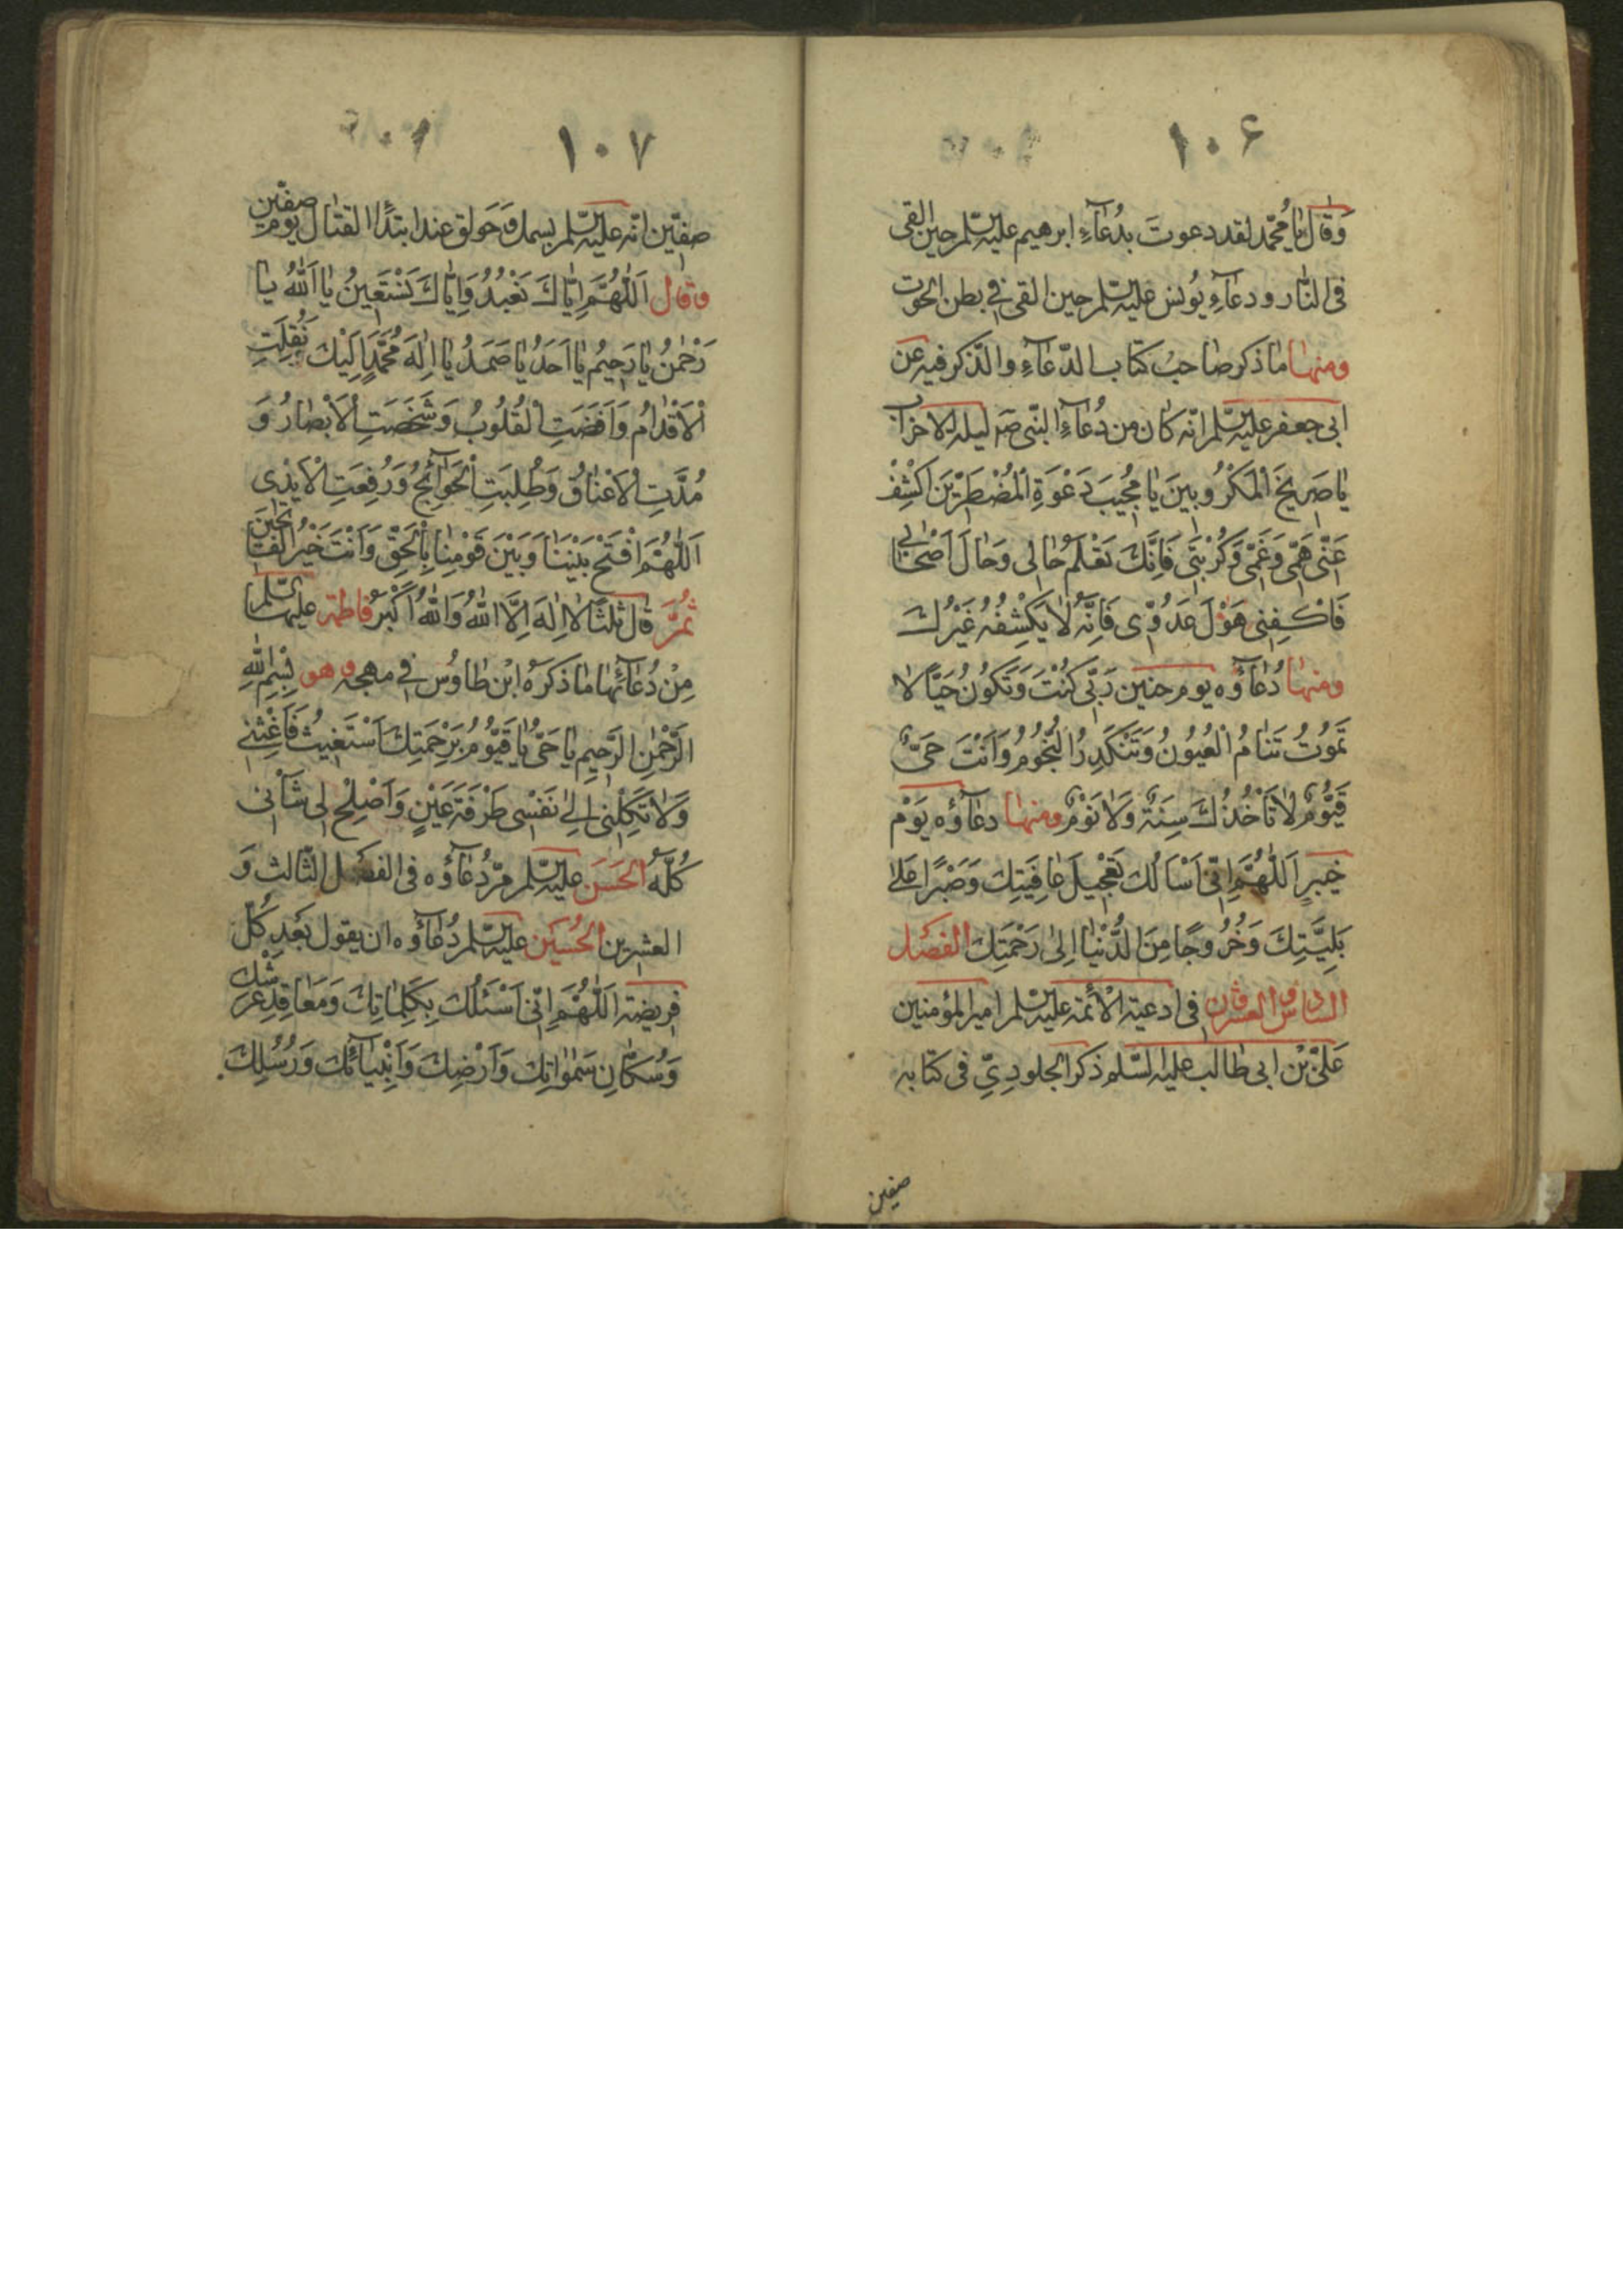 ۱۰۶
وَقٰالَ يٰا مُحَمَّد لقد دعوتَ بدُعٰآءِ ابرهيم عليه السّلم حين القى
فى النّار ودعآءِ يُونس عليه السّلم حين القى فى بطن الحوت
ومنهٰا مٰا ذكر صٰاحبُ كتٰاب الدّعٰآءِ والذّكر فيه عن
ابى جعفر عليه السّلم انّه كٰان من دُعٰآءِ النّبى صَ ليلة الاحزاب
يٰا صَرِيخَ الْمَكْرُوبينَ يٰا مُجِيبَ دَعْوَةِ الْمُضْطَرّينَ اكْشِفْ
عَنّى هَمّى وَغَمّى وَكُرْبَتى فَاِنَّكَ تَعْلَمُ حٰالى وَحٰالَ اَصْحٰابى
فَاكْفِنى هَوْلَ عَدُوّى فَاِنَّهُ لٰا يَكْشِفُهُ غَيْرُكَ
ومنهٰا دُعٰآؤُه يوم حنين رَبّى كُنْتَ وَتَكُونُ حَيًّا لا
تَمُوتُ تَنٰامُ الْعُيُونُ وَتَنْكَدِرُ النُّجُومُ وَاَنْتَ حَىٌّ
قَيُّومٌ لٰا تَأْخُذُكَ سِنَةٌ وَلٰا نَوْمٌ ومنهٰا دعٰآؤُه يَوْم
خيبر اَللّٰهُمَّ اِنّى اَسْأَلُكَ تَعْجيلَ عٰافِيَتِكَ وَصَبْرًا عَلىٰ
بَلِيَّتِكَ وَخُرُوجًا مِنَ الدُّنْيٰا اِلىٰ رَحْمَتِكَ الفصْل
السّادس والعشرون فى ادعية الأئمّة عليه السّلم امير المؤمنين
عَلىّ بْن ابى طالب عليه السّلم ذكر الجلودِىّ فى كتٰابه
صفين
۱۰۷
صفّين انّه عليه السّلم بسمل وَحَولق عند ابتدٰٓاء القتٰال يوم صفّين
وقال اَللّٰهُمَّ اِيّٰاكَ نَعْبُدُ وَاِيّٰاكَ نَسْتَعِينُ يٰا اَللّٰهُ يٰا
رَحْمٰنُ يٰا رَحِيمُ يٰا اَحَدُ يٰا صَمَدُ يٰا اِلٰهَ مُحَمَّدٍ اِلَيْكَ نُقِلَتِ
الْاَقْدٰامُ وَاَفَضَتِ الْقُلُوبُ وَشَخَصَتِ الْاَبْصٰارُ وَ
مُدَّتِ الْاَعْنٰاقُ وَطُلِبَتِ الْحَوٰآئِجُ وَرُفِعَتِ الْاَيْدِى
اَللّٰهُمَّ افْتَحْ بَيْنَنٰا وَبَيْنَ قَوْمِنٰا بِالْحَقِّ وَاَنْتَ خَيْرُ الْفٰاتِحِينَ
ثُمَّ قٰال ثلثًا لٰا اِلٰهَ اِلَّا اللّٰهُ وَاللّٰهُ اَكْبَرُ فاطمة عليها السّلم
مِنْ دُعٰآئِهٰا مٰا ذكرهُ ابْن طٰاوُس فى مهجه وهو بِسْمِ اللّٰهِ
الرَّحْمٰنِ الرَّحِيمِ يٰا حَىُّ يٰا قَيُّومُ بِرَحْمَتِكَ اَسْتَغِيثُ فَاَغِثْنى
وَلٰا تَكِلْنى اِلىٰ نَفْسى طَرْفَةَ عَيْنٍ وَاَصْلِحْ لى شَأْنى
كُلَّهُ الحَسَن عليه السّلم مرّ دُعٰآؤُه فى الفصْل الثّالث وَ
العشرين الحُسَيْن عليه السّلم دُعٰآؤُه ان يقول بَعْد كُلّ
فريضة اَللّٰهُمَّ اِنّى اَسْئَلُكَ بِكَلِمٰاتِكَ وَمَعٰاقِدِ عَرْشِكَ
وَسُكّٰانِ سَمٰوٰاتِكَ وَاَرْضِكَ وَاَنْبِيٰآئِكَ وَرُسُلِكَ